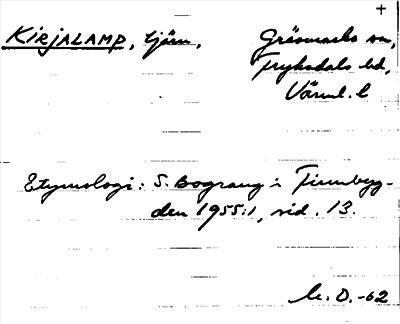 +
KIRJALAMP, tjärn, Gräsmarks sn,
Fryksdals hd,
Värml. l
Etymologi: S. Bograng i Finnbyg-
den 1955:1, sid. 13.
M. O. -62